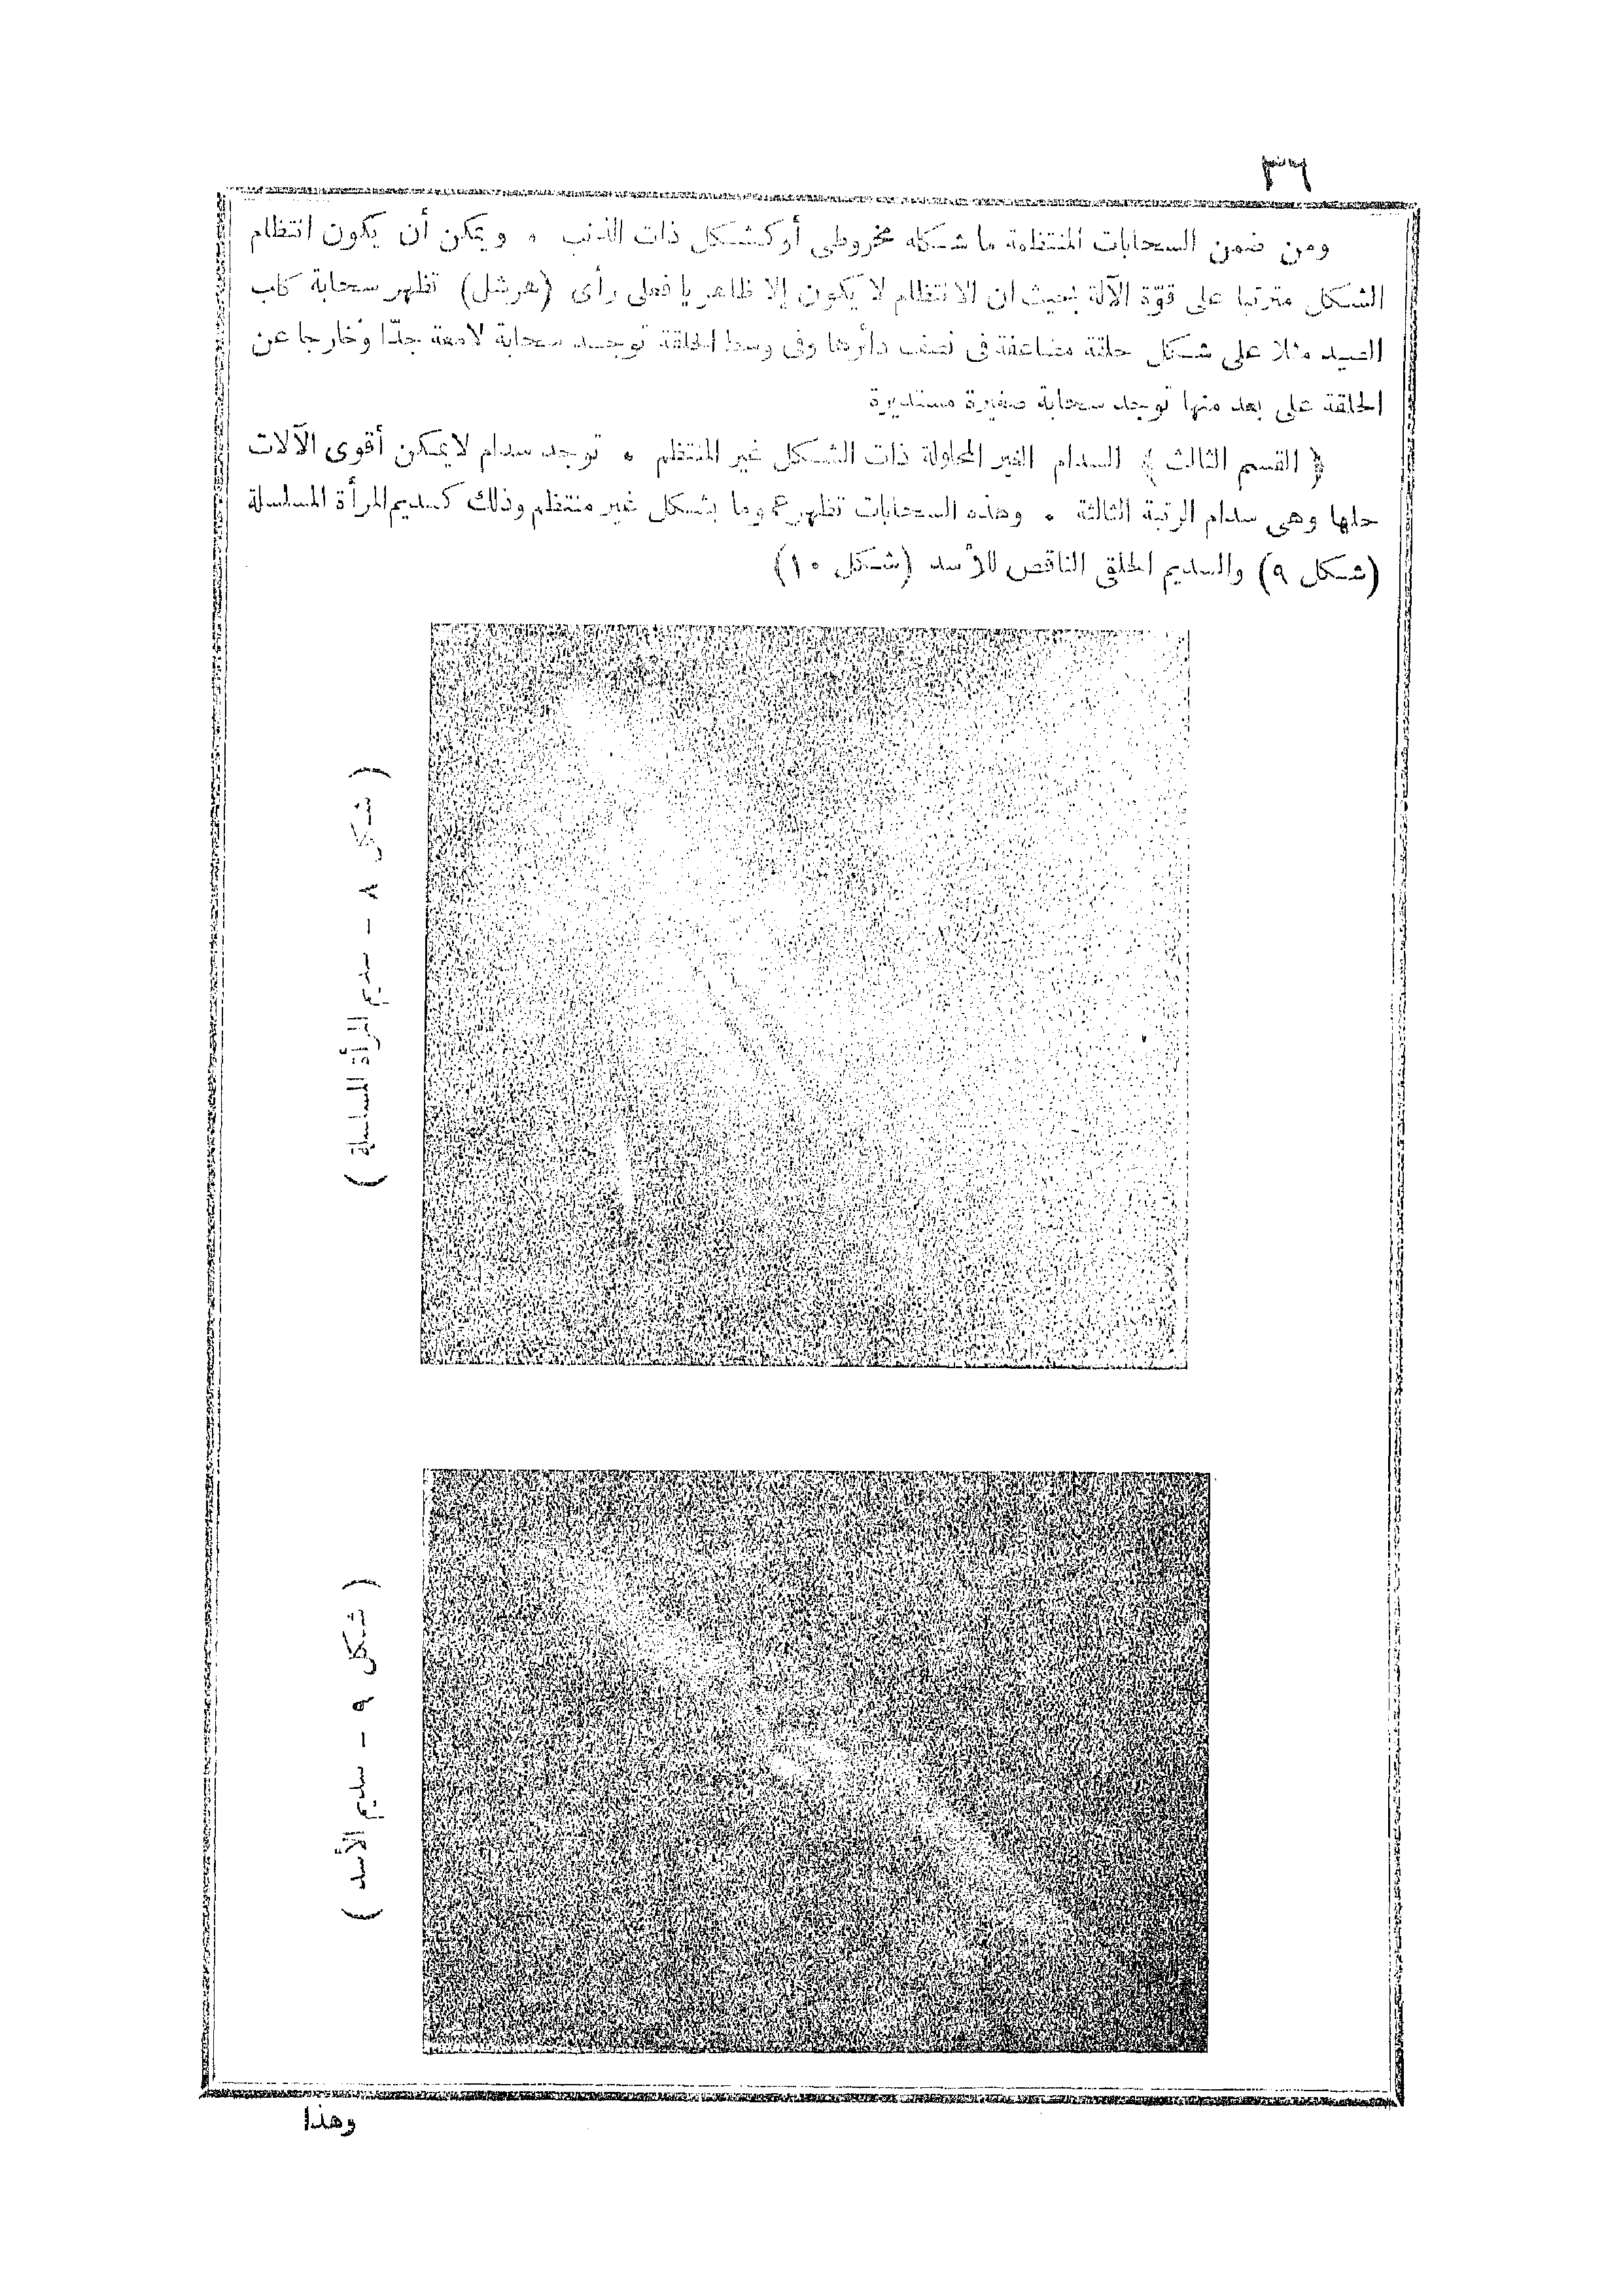 ٣٦
ومن ضمن السحابات المنتظمة ما شكله مخروطى أو كشكل ذات الذنب ٠ ويمكن أن يكون انتظام
الشكل مترتبا على قوّة الآلة بحيث ان الانتظام لا يكون إلا ظاهريا فعلى رأى (هرشل) تظهر سحابة كلب
الصيد مثلا على شكل حلقة مضاعفة فى نصف دائرها وفى وسط الحلقة توجد سحابة لامعة جدّا وخارجا عن
الحلقة على بعد منها توجد سحابة صغيرة مستديرة
﴿ القسم الثالث ﴾ السدام الغير المحلولة ذات الشكل غير المنتظم ٠ توجد سدام لا يمكن أقوى الآلات
حلها وهى سدام الرتبة الثالثة ٠ وهذه السحابات تظهر عموما بشكل غير منتظم وذلك كسديم المرأة المسلسلة
(شكل ٩) والسديم الحلقى الناقص للأسد (شكل ١٠)
( شكل ٨ – سديم المرأة المسلسلة )
( شكل ٩ – سديم الأسد )
وهذا